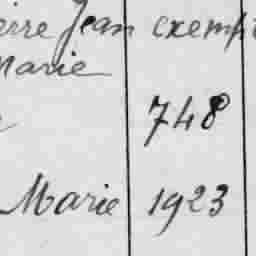 Jean exempt
Marie
748
Marie 1923